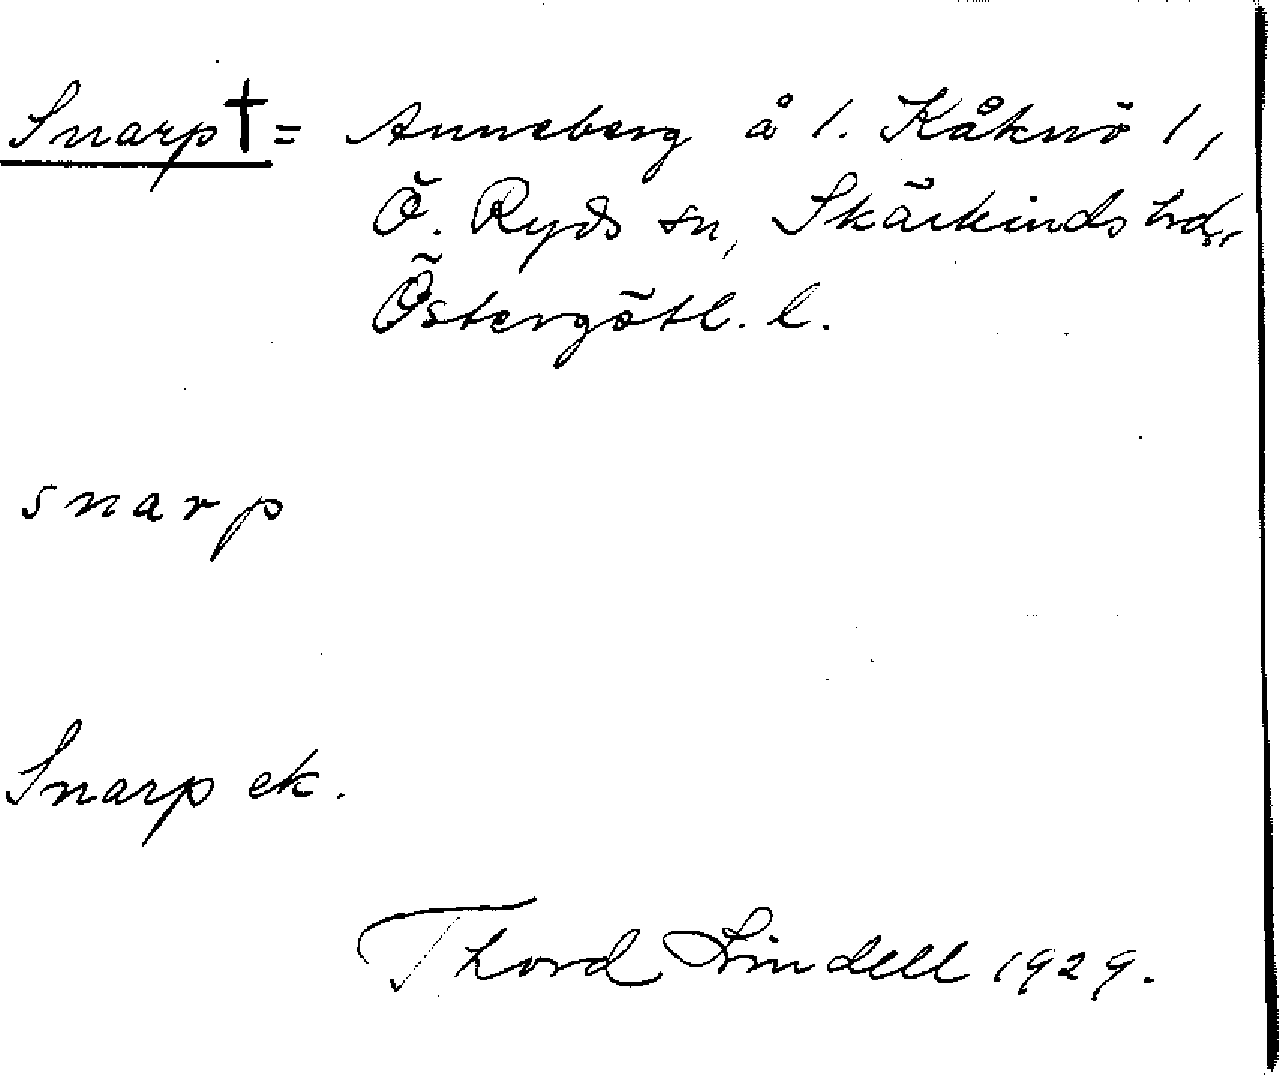 Snarp† = Anneberg å 1. Kåknö 1,
Ö. Ryds sn, Skärkinds hd,
Östergötl. l.
snarp
Snarp ek.
Thord Lindell 1929.